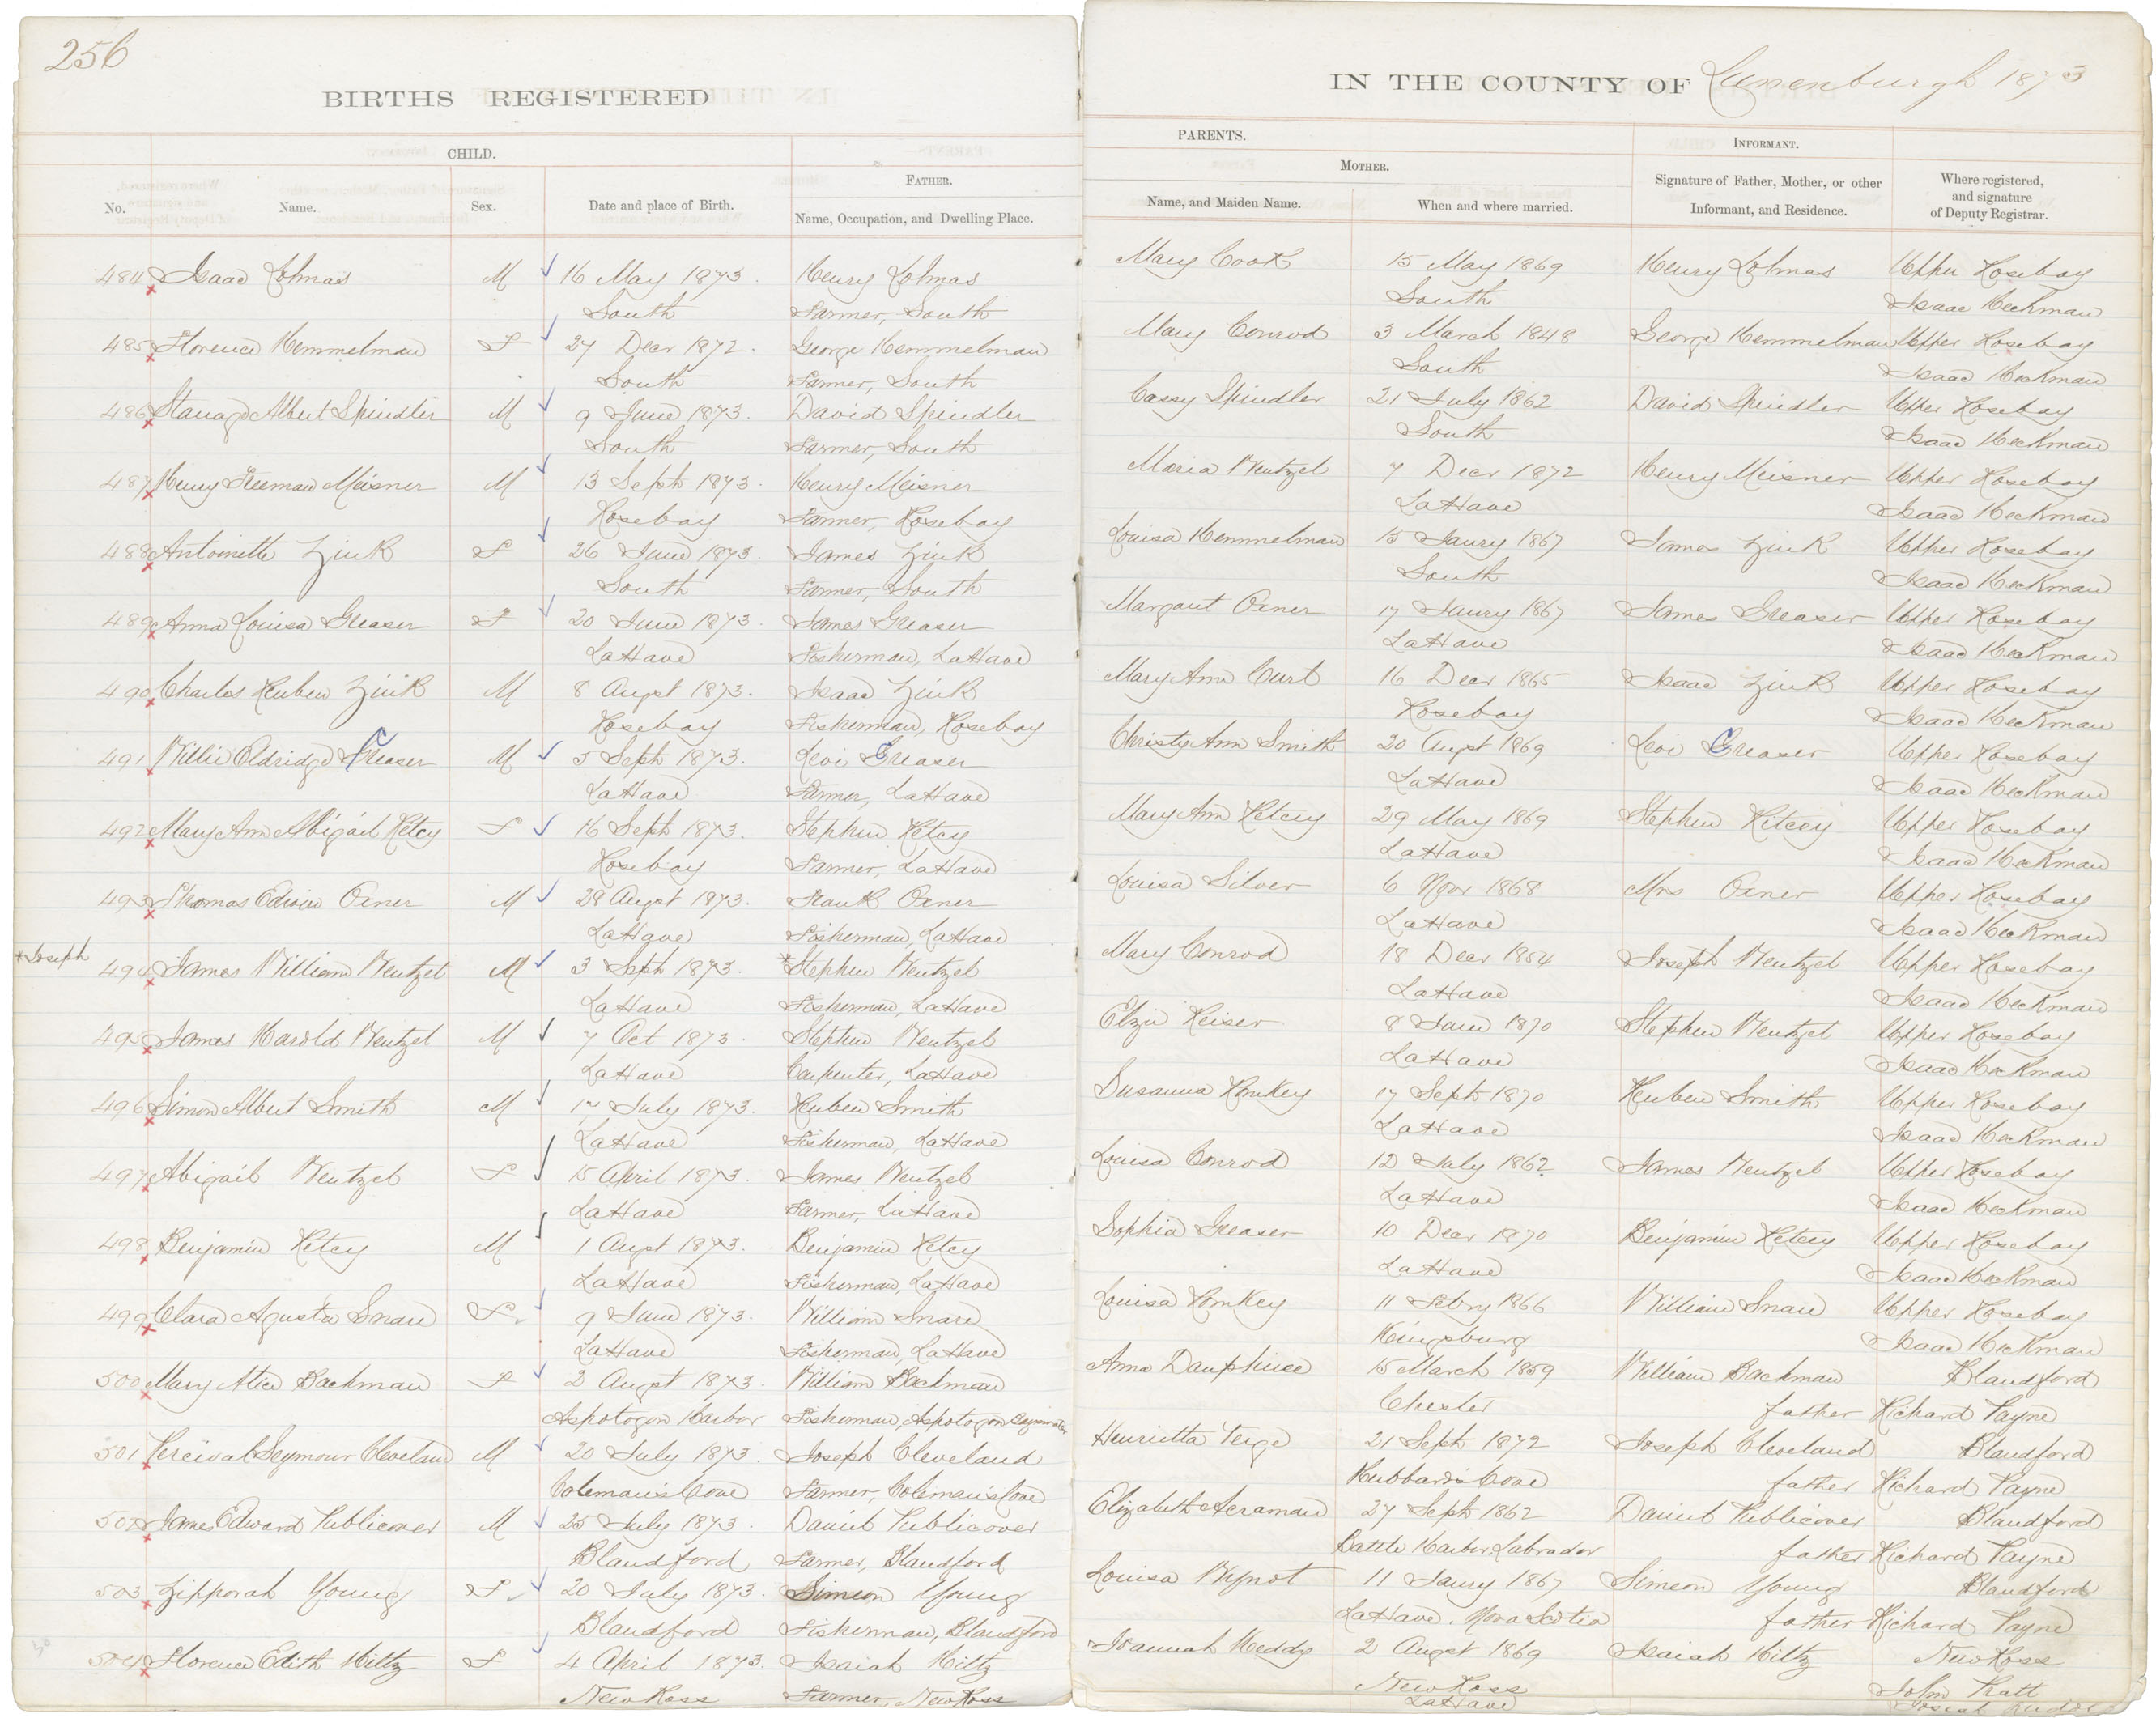 256
BIRTHS REGISTERED
IN THE COUNTY OF Lunenburgh 1873
CHILD.
PARENTS.
INFORMANT.
FATHER.
MOTHER.
No. Name. Sex. Date and place of Birth. Name, Occupation, and Dwelling Place. Name, and Maiden Name. When and where married. Signature of Father, Mother, or other Informant, and Residence. Where registered, and signature of Deputy Registrar.
484 Isaac Lohnas M 16 May 1873. Henry Lohnas Mary Cook 15 May 1869 Henry Lohnas Upper Rosebay
South Farmer, South South Isaac Heckman
485 Florence Hemmelman F 27 Decr 1872. George Hemmelman Mary Conrod 3 March 1848 George Hemmelman Upper Rosebay
South Farmer, South South Isaac Heckman
486 Albert Spindler M 9 June 1873. David Spindler Cassy Spindler 21 July 1862 David Spindler Upper Rosebay
South Farmer, South South Isaac Heckman
487 Henry Freeman Meisner M 13 Sept 1873. Henry Meisner Maria Wentzel 7 Decr 1872 Henry Meisner Upper Rosebay
Rosebay Farmer, Rosebay LaHave Isaac Heckman
488 Antoinette Zink F 26 June 1873. James Zink Louisa Hemmelman 15 Jaury 1867 James Zink Upper Rosebay
South Farmer, South South Isaac Heckman
489 Anna Louisa Greaser F 20 June 1873. James Greaser Margaut Oxner 17 Jaury 1867 James Greaser Upper Rosebay
LaHave Fisherman, LaHave LaHave Isaac Heckman
490 Charles Reuben Zink M 8 Augst 1873. Isaac Zink Mary Ann Curt 16 Decr 1865 Isaac Zink Upper Rosebay
Rosebay Fisherman, Rosebay Rosebay Isaac Heckman
491 Willie Eldridge Greaser M 5 Sept 1873. Levi Greaser Christy Ann Smith 20 Augst 1869 Levi Greaser Upper Rosebay
LaHave Farmer, LaHave LaHave Isaac Heckman
492 Mary Ann Abigail Ritcy F 16 Sept 1873. Stephen Ritcy Mary Ann Ritcey 29 May 1869 Stephen Ritcey Upper Rosebay
Rosebay Farmer, LaHave LaHave Isaac Heckman
493 Thomas Edwin Oxner M 28 Augst 1873. Frank Oxner Louisa Silver 6 Novr 1868 Mrs Oxner Upper Rosebay
LaHave Fisherman, LaHave LaHave Isaac Heckman
*Joseph 494 James William Wentzel M 3 Sept 1873. *Stephen Wentzel Mary Conrod 18 Decr 1854 Joseph Wentzel Upper Rosebay
LaHave Fisherman, LaHave LaHave Isaac Heckman
495 James Harold Wentzel M 7 Oct 1873. Stephen Wentzel Elzie Keiser 8 Jaur 1870 Stephen Wentzel Upper Rosebay
LaHave Carpenter, LaHave LaHave Isaac Heckman
496 Simon Albert Smith M 17 July 1873. Reuben Smith Susanna Romkey 17 Sept 1870 Reuben Smith Upper Rosebay
LaHave Fisherman, LaHave LaHave Isaac Heckman
497 Abigail Wentzel F 15 April 1873. James Wentzel Louisa Conrod 12 July 1862 James Wentzel Upper Rosebay
LaHave Farmer, LaHave LaHave Isaac Heckman
498 Benjamin Ritcy M 1 Augst 1873. Benjamin Ritcy Sophia Greaser 10 Decr 1870 Benjamin Ritcey Upper Rosebay
LaHave Fisherman, LaHave LaHave Isaac Heckman
499 Clara Agusta Snare F 9 June 1873. William Snare Louisa Romkey 11 Febry 1866 William Snare Upper Rosebay
LaHave Fisherman, LaHave Kingsburg Isaac Heckman
500 Mary Alice Backman F 2 Augst 1873. William Backman Anna Dauphinee 15 March 1859 William Backman Blandford
Aspotogon Harbor Fisherman, Aspotogon Chester father Richard Payne
501 Percival Seymour Cleveland M 20 July 1873. Joseph Cleveland Henrietta Teige 21 Sept 1872 Joseph Cleveland Blandford
Coleman's Cove Farmer, Coleman's Cove Hubbard's Cove father Richard Payne
502 James Edward Publicover M 25 July 1873. Daniel Publicover Elizabeth Acraman 27 Sept 1862 Daniel Publicover Blandford
Blandford Farmer, Blandford Battle Harbor, Labrador father Richard Payne
503 Zipporah Young F 20 July 1873. Simeon Young Louisa Wynot 11 Jaury 1867 Simeon Young Blandford
Blandford Fisherman, Blandford LaHave, Nova Scotia father Richard Payne
504 Florence Edith Hiltz F 4 April 1873. Isaiah Hiltz Joannah Keddy 2 Augst 1869 Isaiah Hiltz New Ross
New Ross Farmer, New Ross New Ross John Pratt
LaHave